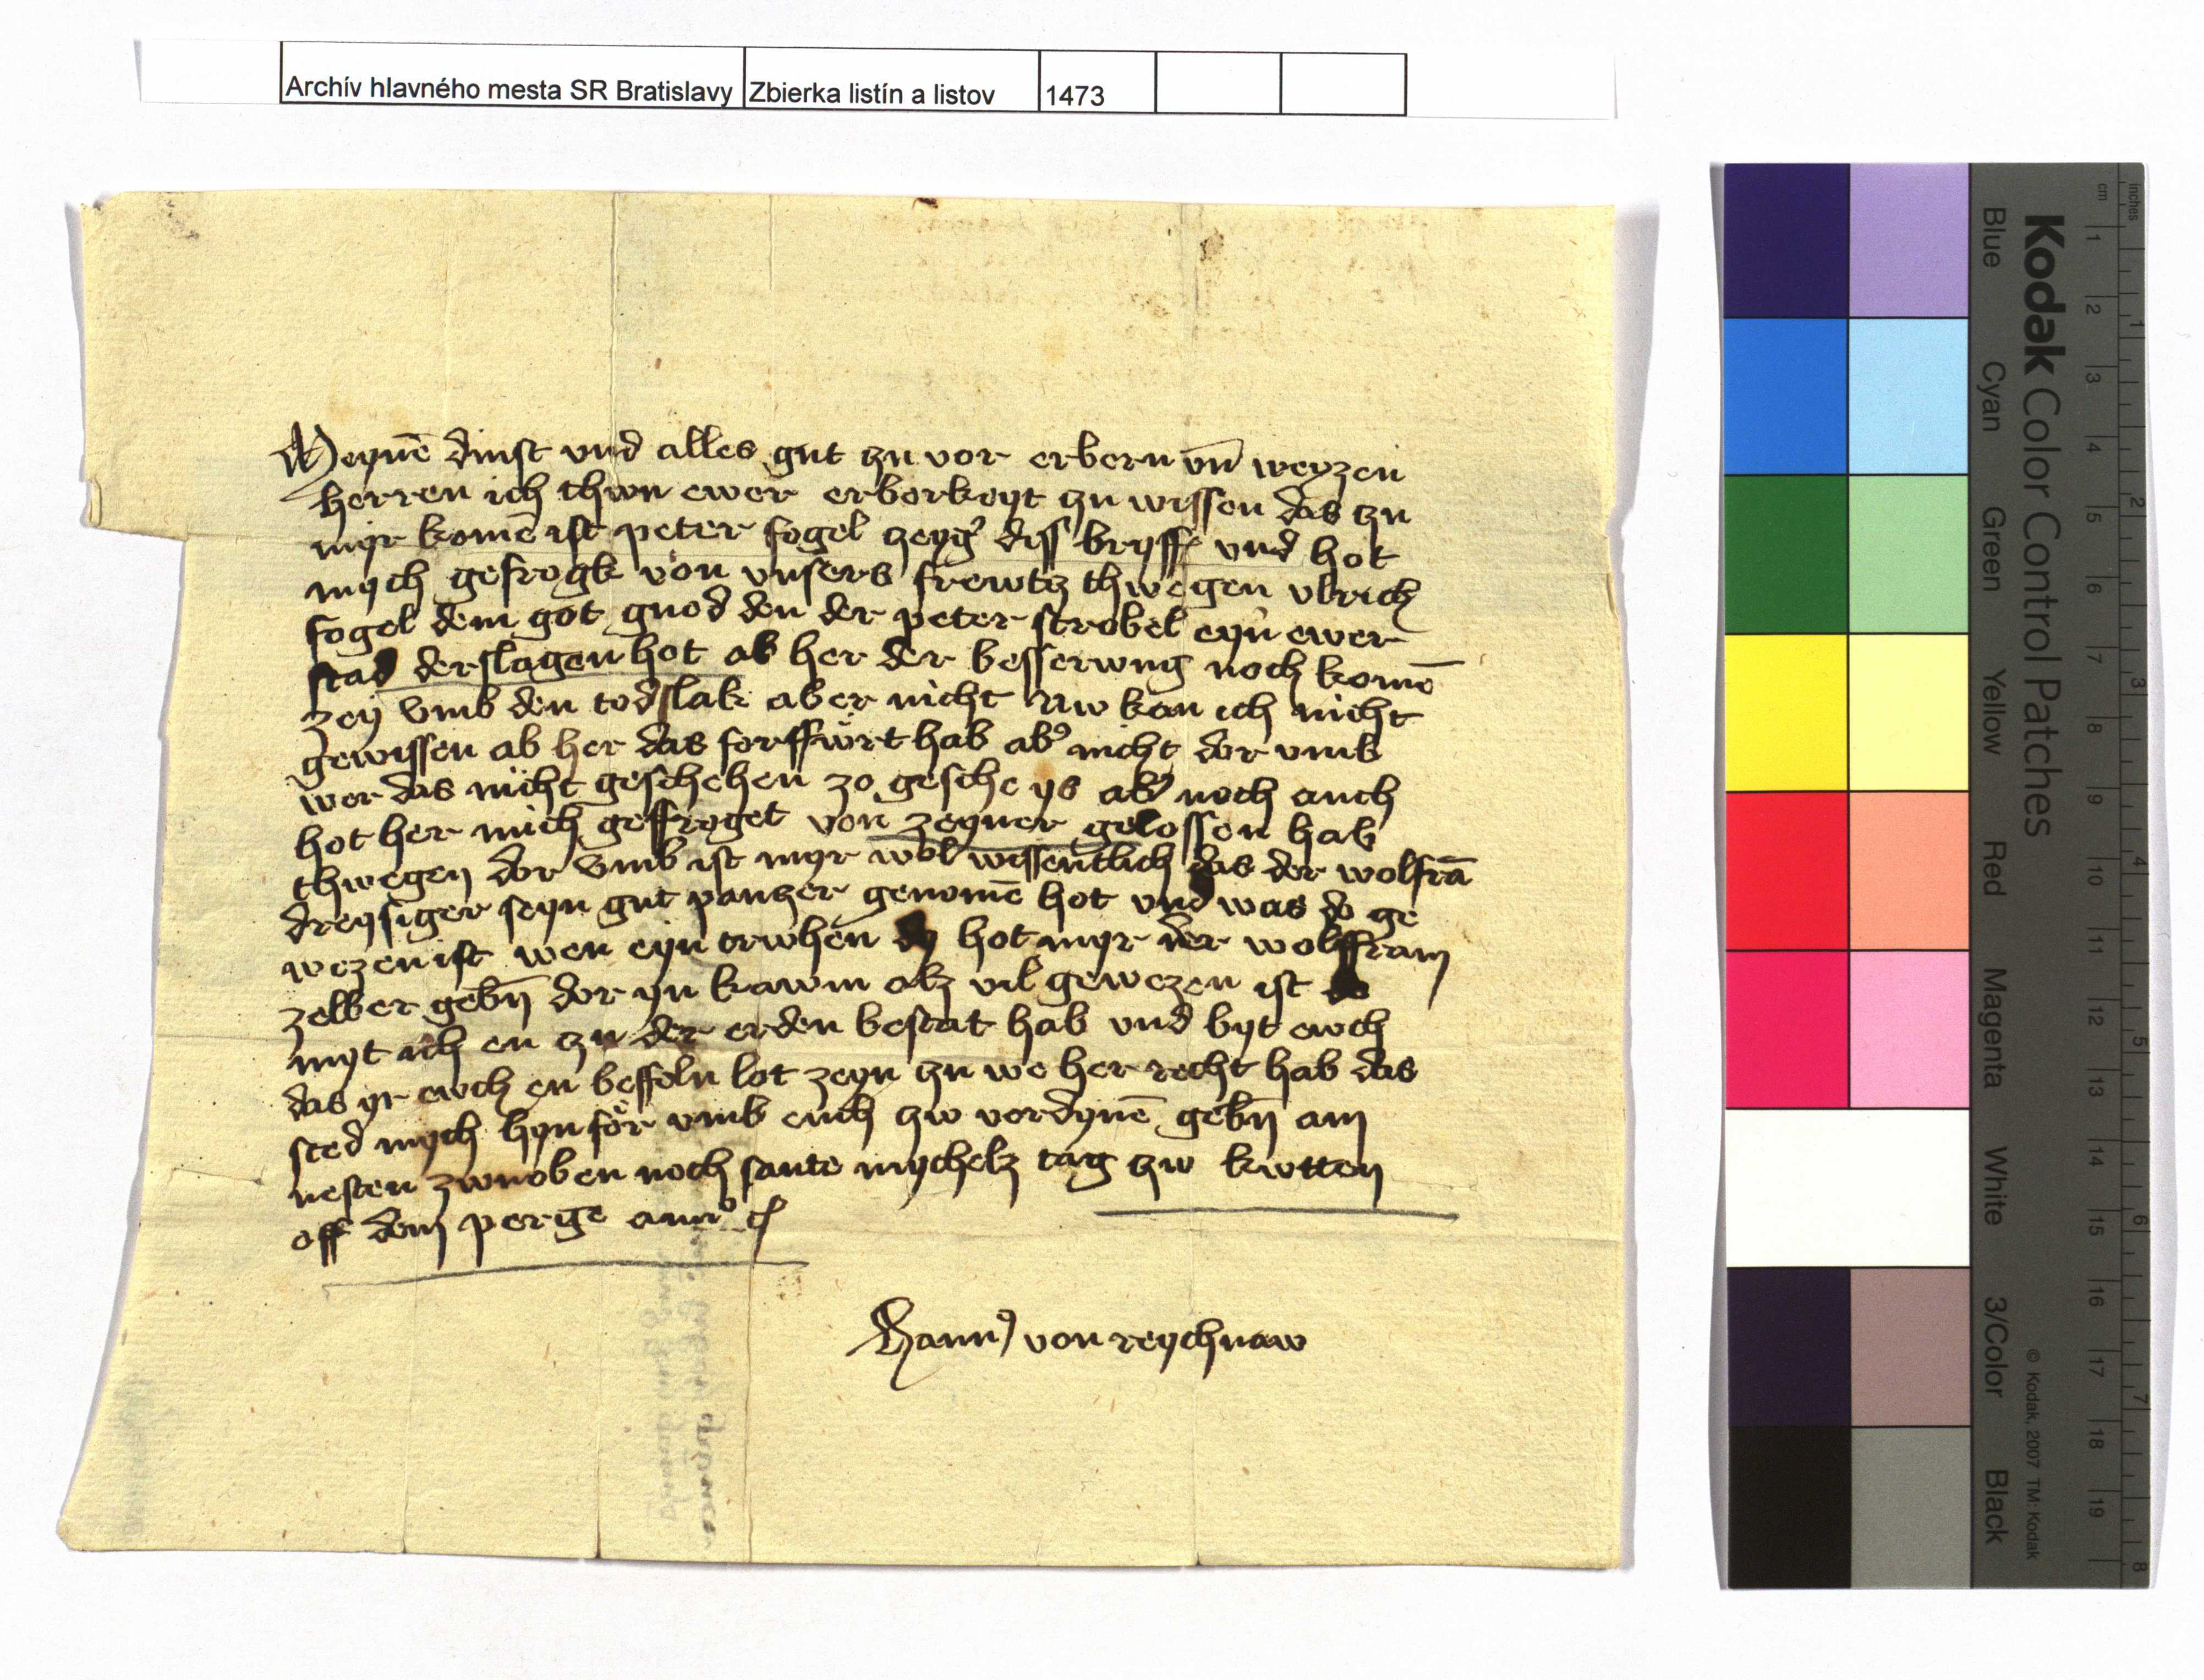 Archív hlavného mesta SR Bratislavy Zbierka listín a listov 1473
Meynē dinst vnd alles gut zu vor erbern vn̄ weyzen
herren ich thwn ewer erberkeyt zu wissen das zu
myr komē ist peter fogel zeyg' diss bryff vnd hot
mych gefrogk von vnsers frewtz thwegen vlrich
fogel dem got gnod den der peter strobel eyn ewer
stad derslagen hot ab her der besserwng noch komē
zey vmb den todslak aber nicht Nw kan ich nicht
gewissen ab her das forffwrt hab ab' nicht dor vmb
wer das nicht geschehen zo gesche ys ab' noch auch
hot her mich geffroget von zeyner gelossen hab
thwegen dor vmb ist myr wol wissentlich das der wolfrā
dreysiger seyn gut panzer genomē hot vnd was do ge
wezen ist wen eyn trwhen dy hot myr der wolffram
zelber gebn̄ dor yn kawm alz vil gewezen ist do
myt ich en zu der erden bestat hab vnd byt ewch
das yr ewch en beffoln lot zeyn zu we her recht hab das
sted mych hynför vmb euch zw vordynē gebn̄ am
nesten zwnoben noch sante mychelz tag zw kwtten
off dem perge anno
Hann' von reychnaw
Kodak Color Control Patches
Blue Cyan Green Yellow Red Magenta White 3/Color Black
© Kodak, 2007 TM: Kodak
inches 1 2 3 4 5 6 7 8
cm 1 2 3 4 5 6 7 8 9 10 11 12 13 14 15 16 17 18 19